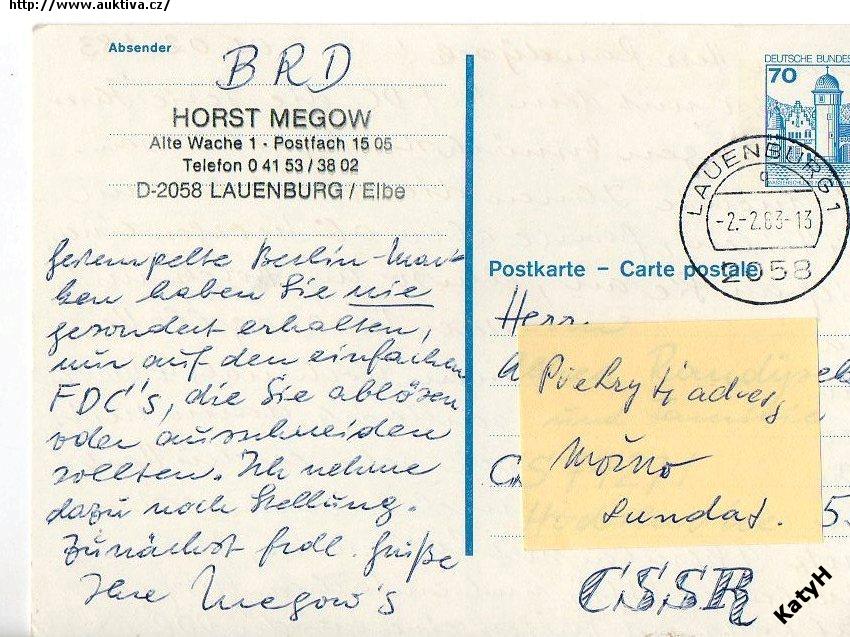 http://www.auktiva.cz/
Absender
BRD
HORST MEGOW
Alte Wache 1 - Postfach 15 05
Telefon 0 41 53 / 38 02
D-2058 LAUENBURG / Elbe
gestempelte Berlin-Mar-
ken haben Sie nie
gesondert erhalten,
nur auf den einfachen
FDC's, die Sie ablösen
oder ausschneiden
sollten. Ich nehme
dazu noch Stellung.
Zunächst frdl. Grüße
Ihre Megow's
DEUTSCHE BUNDES
70
LAUENBURG 1
-2.-2.83-13
2058
Postkarte – Carte postale
Herr
Možno
sundat.
CSSR
KatyH